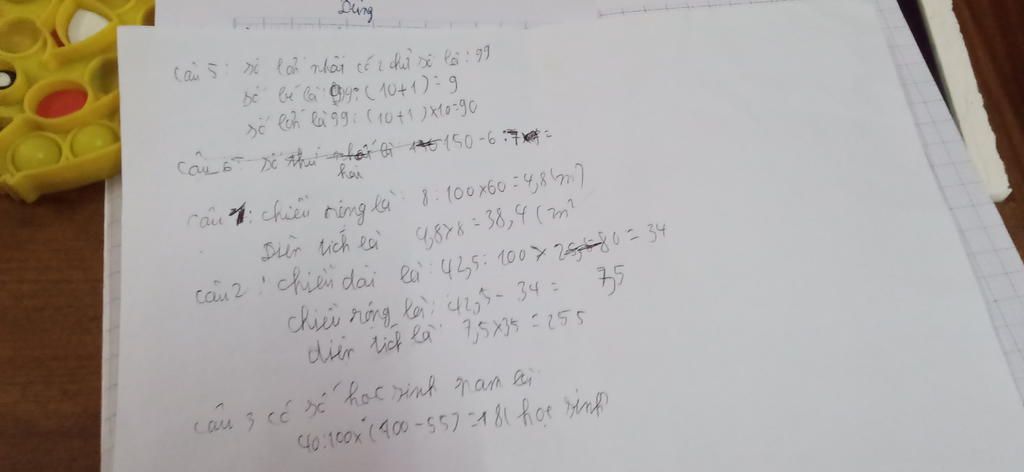 Dũng
Câu 5: số lớn nhất có 2 chữ số là: 99
số bé là 99: (10+1) = 9
số lớn là 99: (10+1)×10=90
Câu 6: số thứ hai là 150-6:
Câu 1: chiều rộng là: 8:100×60=4,8(m)
Diện tích là 4,8×8=38,4(m²
Câu 2: chiều dài là: 42,5:100× 80=34
chiều rộng là: 42,5-34= 7,5
diện tích là 7,5×35=255
câu 3 có số học sinh nam là
40:100×(400-55)=18( học sinh